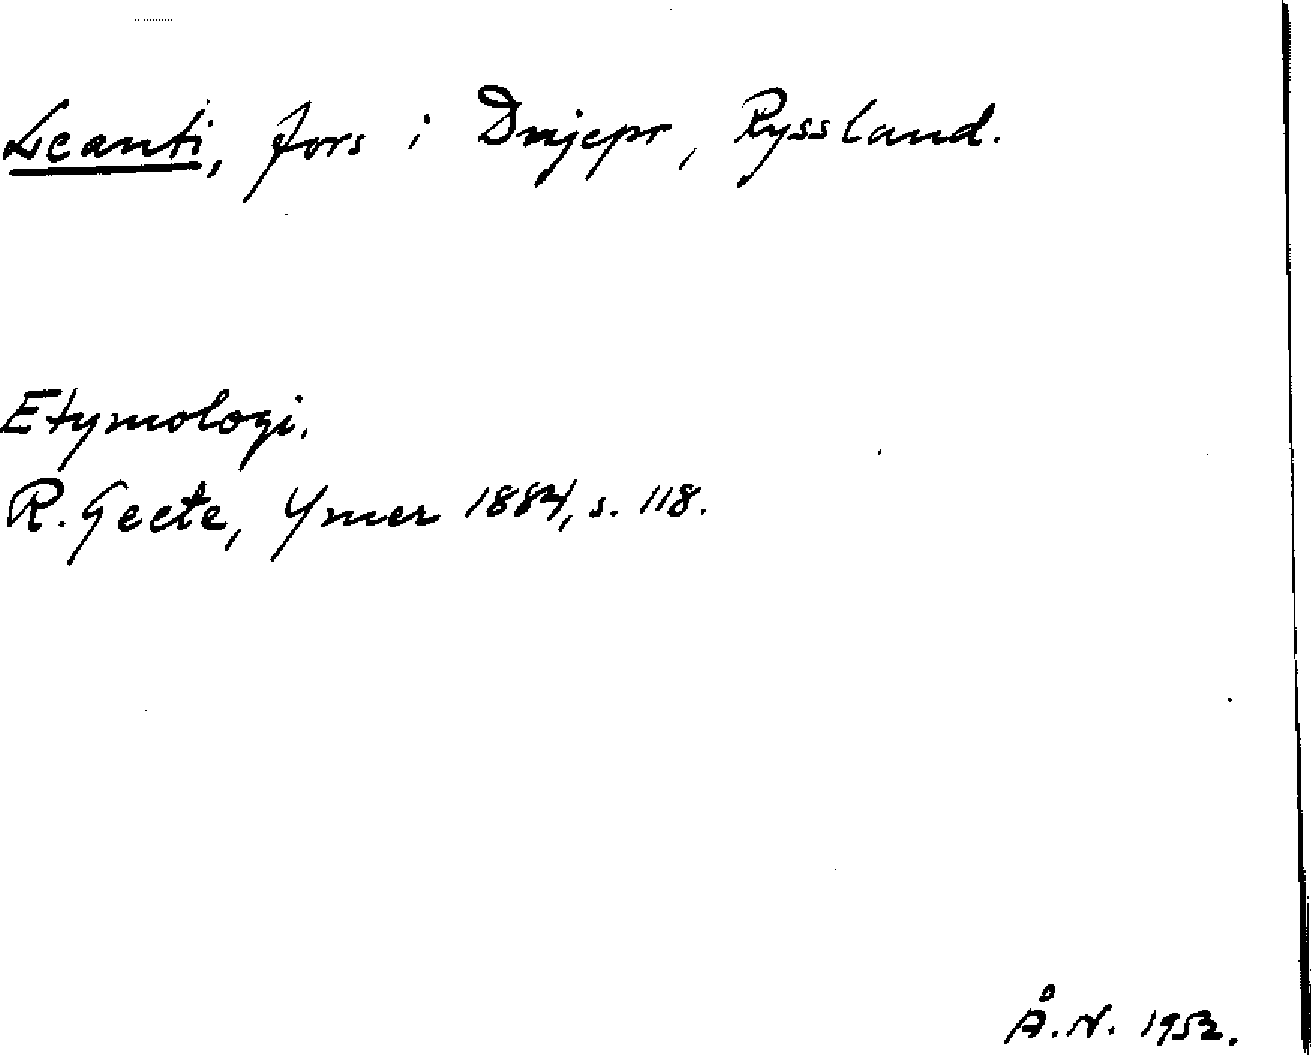 Leanti, fors i Dnjepr, Ryssland.
Etymologi.
R. Geete, Ymer 1884, s. 118.
Å. N. 1952.